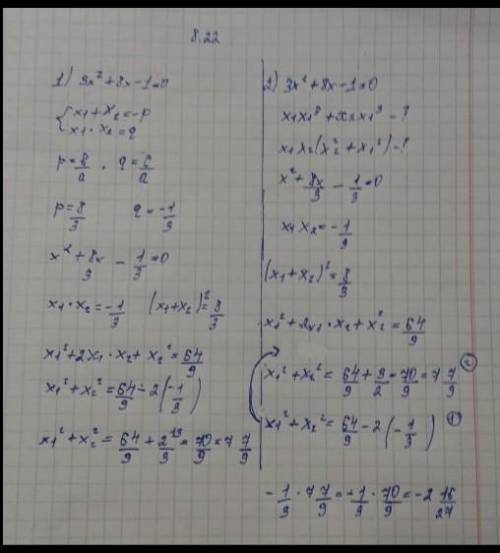 8.22
1) 3x² + 8x - 1 = 0
{ x₁ + x₂ = -p
x₁ · x₂ = q
p = b/a , q = c/a
p = 8/3 q = -1/3
x² + 8x/3 - 1/3 = 0
x₁ · x₂ = -1/3 (x₁ + x₂)² = 8/3
x₁² + 2x₁ · x₂ + x₂² = 64/9
x₁² + x₂² = 64/9 - 2(-1/3)
x₁² + x₂² = 64/9 + 2/3 = 70/9 = 7 7/9
2) 3x² + 8x - 1 = 0
x₁x₂³ + x₂x₁³ - ?
x₁x₂(x₂² + x₁²) - ?
x² + 8x/3 - 1/3 = 0
x₁x₂ = -1/3
(x₁ + x₂)² = 8/3
x₁² + 2x₁ · x₂ + x₂² = 64/9
x₁² + x₂² = 64/9 + 3/2 = 70/9 = 7 7/9 (2)
x₁² + x₂² = 64/9 - 2(-1/3) (1)
-1/3 · 7 7/9 = -1/3 · 70/9 = -2 16/27